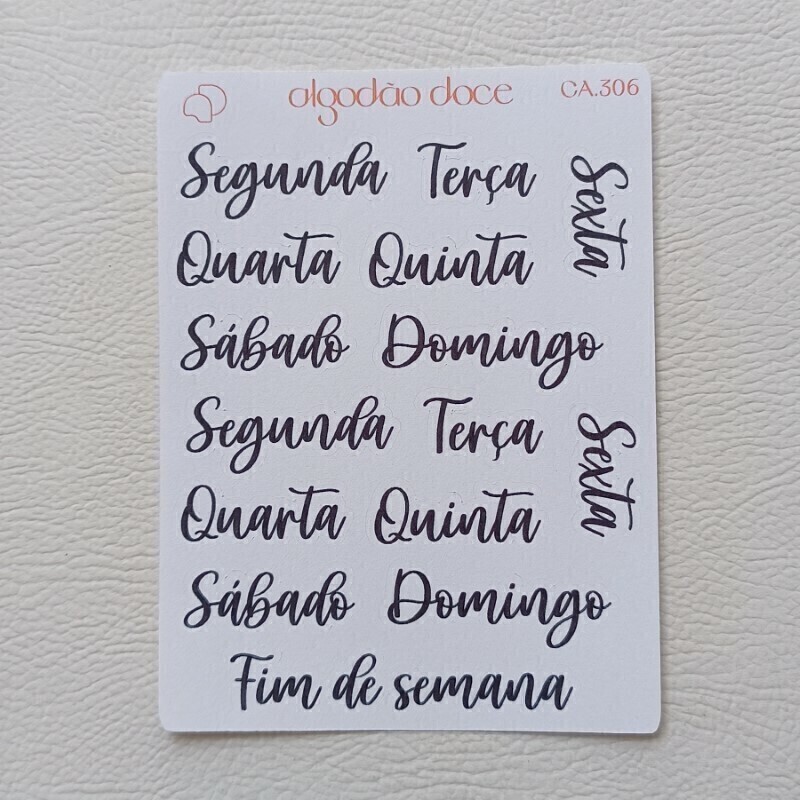 algodão doce
CA.306
Segunda Terça
Sexta
Quarta Quinta
Sábado Domingo
Segunda Terça
Sexta
Quarta Quinta
Sábado Domingo
Fim de semana